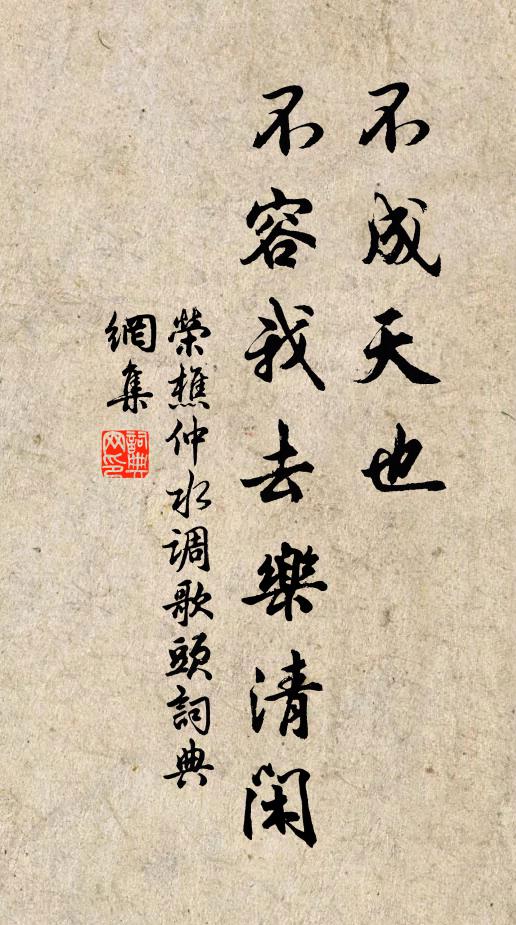 不成天也
不容我去樂清閑
榮樵仲水调歌頭詞典
網集
詞典
网印